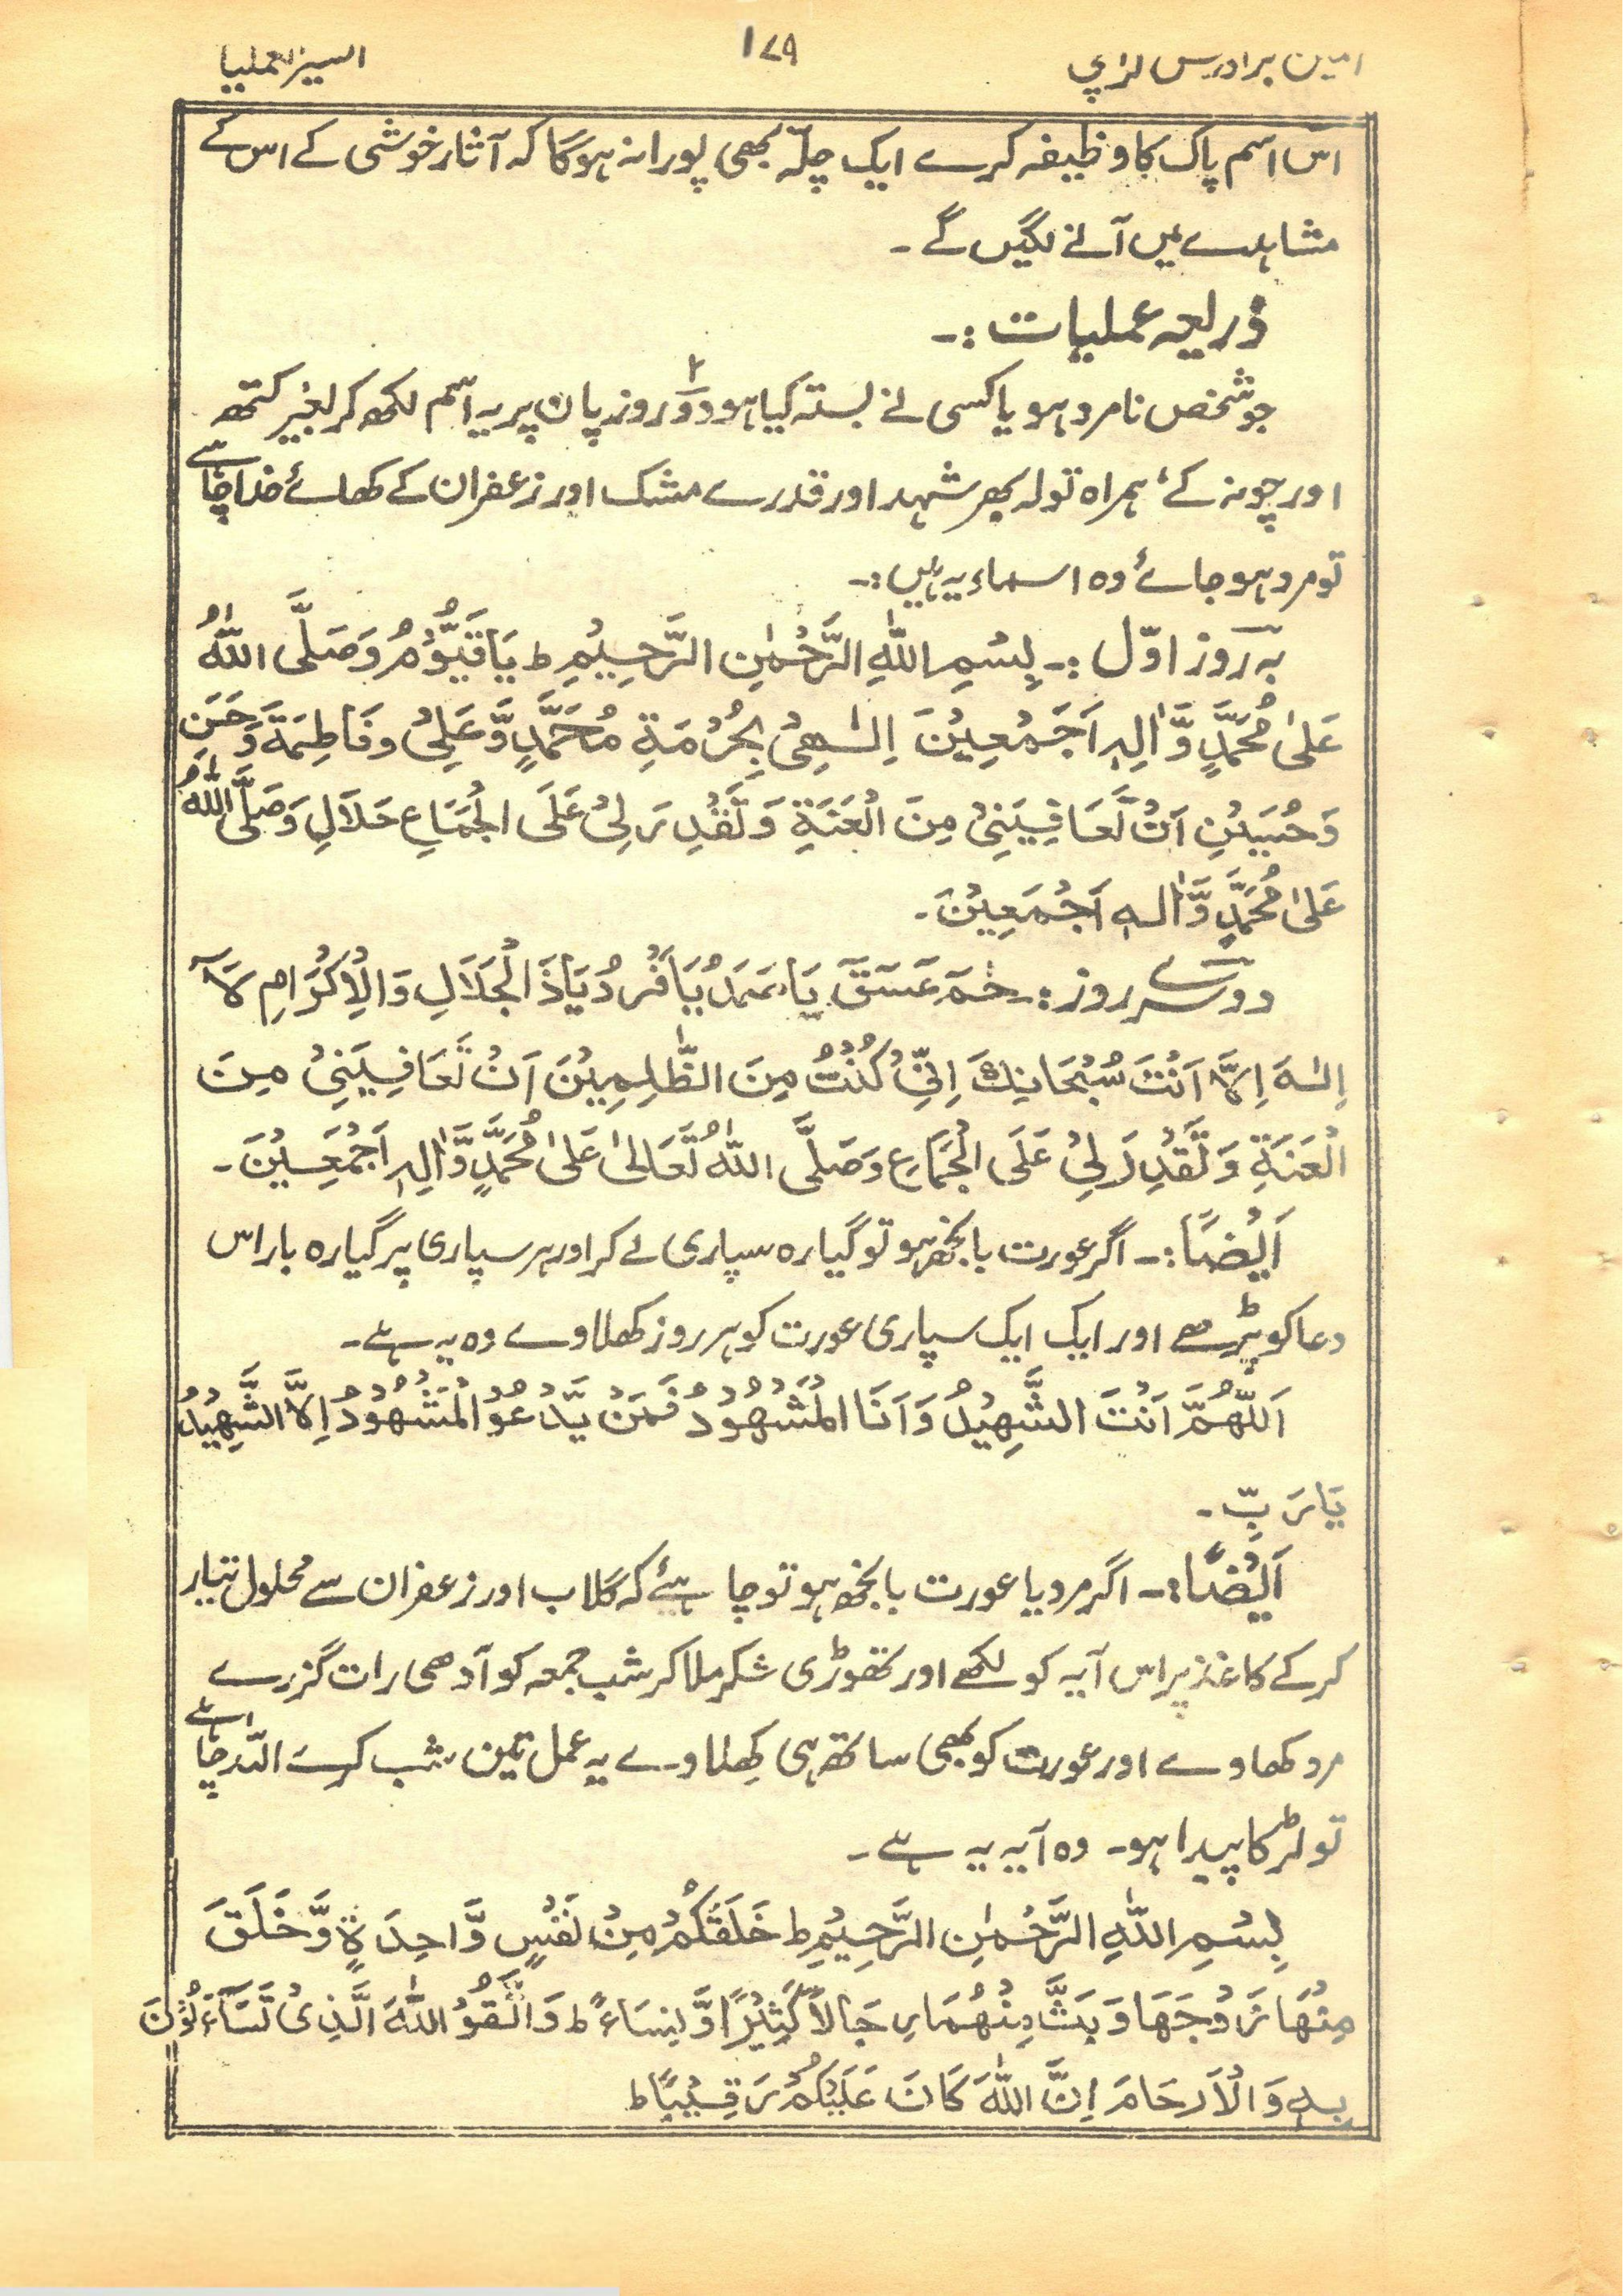 امین برادرس کراچی ۱۷۹ اکسیر العملیا
اس اسم پاک کا وظیفہ کرے ایک چلّہ بھی پورا نہ ہوگا کہ آثار خوشی کے اس کے
مشاہدے میں آنے لگیں گے ۔
ذریعہ عملیات :۔
جو شخص نامرد ہو یا کسی نے بستہ کیا ہو دو۲ روز پان پر یہ اسم لکھ کر بغیر کتھہ
اور چونہ کے ہمراہ تولہ بھر شہد اور قدرے مشک اور زعفران کے کھائے خدا چاہے
تو مرد ہو جائے وہ اسماء یہ ہیں :۔
بہ روز اوّل :۔ بِسْمِ اللّٰهِ الرَّحْمٰنِ الرَّحِیْمِ ط یَا قَیُّوْمُ وَصَلَّی اللّٰهُ
عَلیٰ مُحَمَّدٍ وَّاٰلِهٖ اَجَمْعِیْنَ اِلٰـهِیْ بِحُرْمَةِ مُحَمَّدٍ وَّعَلِیْ وفَاطِمَةَ وَحَسَنِ
وَحُسَیْنِ اَنْ تَعَافِیَنِیْ مِنَ الْعَنَةِ وَتَقْدِرَ لِیْ عَلَی الْجِمَاعِ حَلَالِ وَصَلَّی اللّٰهُ
عَلیٰ مُحَمَّدٍ وَّاٰلهٖ اَجْمَعِیْنَ ۔
دوسرے روز :۔ حٰمٓ عٓسٓقٓ یَا صَمَدُ یَا فَرْدُ یَا ذَ الْجَلَالِ وَالْاِکْرَامِ لَآ
اِلٰـهَ اِلَّا اَنْتَ سُبْحَانَكَ اِنِّیْ کُنْتُ مِنَ الظّٰلِمِیْنَ اَنْ تَعَافِیَنِیْ مِنَ
الْعَنَةِ وَتَقْدِرَ لِیْ عَلَی الْجِمَاعِ وَصَلَّی اللّٰهُ تَعَالیٰ عَلیٰ مُحَمَّدٍ وَّاٰلِهٖ اَجْمَعِیْنَ ۔
اَیْضًا :۔ اگر عورت بانجھ ہو تو گیارہ سپاری لے کر اور ہر سپاری پر گیارہ بار اس
دعا کو پڑھے اور ایک ایک سپاری عورت کو ہر روز کھلاوے وہ یہ ہے ۔
اَللّٰهُمَّ اَنْتَ الشَّهِیْدُ وَاَنَا الْمَشْهُوْدُ فَمَنْ یَّدْعُوْ الْمَشْهُوْدُ اِلَّا الشَّهِیْدُ
یَا رَبِّ ۔
اَیْضًا :۔ اگر مرد یا عورت بانجھ ہو تو چاہیئے کہ گلاب اور زعفران سے محلول تیار
کرکے کاغذ پر اس آیہ کو لکھے اور تھوڑی شکر ملا کر شب جمعہ کو آدھی رات گزرے
مرد کھاوے اور عورت کو بھی ساتھ ہی کھلاوے یہ عمل تین شب کرے اللّہ چاہے
تو لڑکا پیدا ہو ۔ وہ آیہ یہ ہے ۔
بِسْمِ اللّٰهِ الرَّحْمٰنِ الرَّحِیْمِ ط خَلَقَکُمْ مِنْ نَفْسٍ وَّاحِدَةٍ وَّخَلَقَ
مِنْهَا زَوْجَهَا وَبَثَّ مِنْهُمَا رِجَالاً کَثِیْرًا وَّنِسَاءً ط وَاتَّقُوْ اللّٰهَ الَّذِیْ تَسَآءَلُوْنَ
بِهٖ وَالْاَرحَامَ اِنَّ اللّٰهَ کَانَ عَلَیْکُمْ رَقِیْبًا ط